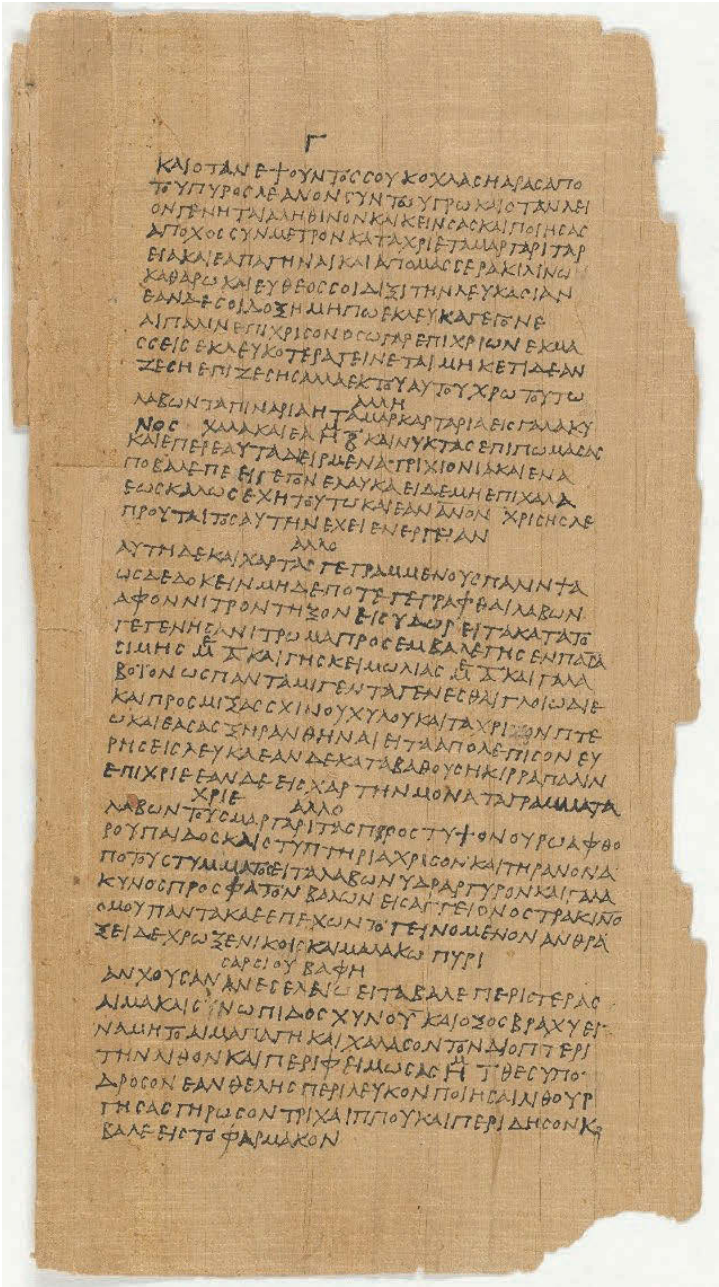 Γ
ΚΑΙΟΤΑΝΕΨΟΥΝΤΟССΟΥΚΟΧΛΑСΗΑΡΑСΑΠΟ
ΤΟΥΠΥΡΟСΛΕΑΝΟΝСΥΝΤΩΥΓΡΩΚΑΙΟΤΑΝΛΕΙ
ΟΝΓΕΝΗΤΑΙΑΛΗΘΙΝΟΝΚΑΙΚΕΙΝСΑСΚΑΙΠΟΙΗСΑС
ΑΠΟΧΟССΥΝΜΕΤΡΟΝΚΑΤΑΧΡΙΕΤΑΜΑΡΓΑΡΙΤΑΡ
ΕΙΑΚΑΙΕΑΠΑΓΗΝΑΙΚΑΙΑΠΟΜΑССΕΡΑΚΙΛΙΝΩ
ΚΑΘΑΡΩΚΑΙΕΥΘΕΟССΟΙΔΙΞΙΤΗΝΛΕΥΚΑСΙΑΝ
ΕΑΝΔΕСΟΙΔΟΞΗΜΗΠΩΕΚΛΕΥΚΑΓΕΓΟΝΕ
ΑΙΠΑΛΙΝΕΠΙΧΡΙСΟΝΟСΩΓΑΡΕΠΙΧΡΙΩΝΕΚΜΑ
ССΕΙСΕΚΛΕΥΚΟΤΕΡΑΓΕΙΝΕΤΑΙΜΗΚΕΤΙΔΕΑΝ
ΖΕСΗΕΠΙΖΕСΗСΑΛΛΑΕΚΤΟΥΑΥΤΟΥΧΡΩΤΟΥΤΩ
ΑΛΛΗ
ΛΑΒΩΝΤΑΠΙΝΑΡΙΑΗΤΑΜΑΡΚΑΡΤΑΡΙΑΕΙСΓΑΛΑΚΥ
ΝΟС ΧΑΛΑΚΑΙΕΑ ΚΑΙΝΥΚΤΑСΕΠΙΠΩΜΑСΑС
ΚΑΙΕΠΕΡΕΑΥΤΑΔΕΙΡΜΕΝΑΤΡΙΧΙΟΝΙΑΚΑΙΕΝΑ
ΠΟΒΑΛΕΠΕ ΕΙΓΕΓΟΝΕΛΑΥΚΑΕΙΔΕΜΗΕΠΙΧΑΛΑ
ΕΩСΚΑΛΩСΕΧΗΤΟΥΤΩΚΑΙΕΑΝΑΝΟΝ ΧΡΙСΗСΛΕ
ΠΡΟΥΤΑΙΤΟСΑΥΤΗΝΕΧΕΙΕΝΕΡΓΕΙΑΝ
ΑΛΛΟ
ΑΥΤΗΔΕΚΑΙΧΑΡΤΑСΓΕΓΡΑΜΜΕΝΟΥСΠΑΛΙΝΨΑ
ΩСΔΕΔΟΚΕΙΝΜΗΔΕΠΟΤΕΓΕΓΡΑΦΘΑΙΛΑΒΩΝ
ΑΦΟΝΝΙΤΡΟΝΤΗΞΟΝΕΙСΥΔΩΡΕΙΤΑΚΑΤΑΤΟ
ΓΕΓΕΝΗСΑΝΙΤΡΩΜΑΠΡΟСΕΜΒΑΛΕΓΗСΕΝΠΑСΑ
СΙΜΗС Μ Α ΚΑΙΓΗСΚΕΙΜΩΛΙΑС Μ Α ΚΑΙΓΑΛΑ
ΒΟΙΟΝΩСΠΑΝΤΑΜΙΓΕΝΤΑΓΕΝΕСΘΑΙΓΛΟΙΩΔΙΕ
ΚΑΙΠΡΟСΜΙΞΑССΧΙΝΟΥΧΥΛΟΥΚΑΙΤΑΧΡΙΖΟΝΠΤΕ
ΩΚΑΙΕΑСΑСΞΗΡΑΝΘΗΝΑΙΕΙΤΑΑΠΟΛΕΠΙСΟΝΕΥ
ΡΗСΕΙСΛΕΥΚΛΕΑΝΔΕΚΑΤΑΒΑΘΟΥСΗΚΙΡΡΑΠΑΛΙΝ
ΕΠΙΧΡΙΕΕΑΝΔΕΕΙСΧΑΡΤΗΝΜΟΝΑΤΑΓΡΑΜΜΑΤΑ
ΧΡΙΕ ΑΛΛΟ
ΛΑΒΩΝΤΟΥСΜΑΡΓΑΡΙΤΑСΠΡΟСΤΥΨΟΝΟΥΡΩΑΦΘΟ
ΡΟΥΠΑΙΔΟСΚΑΙСΤΥΠΤΗΡΙΑΧΡΙСΟΝΚΑΙΤΗΡΑΝΟΝΑ
ΠΟΤΟΥСΤΥΜΜΑΤΟСΕΙΤΑΛΑΒΩΝΥΔΡΑΡΓΥΡΟΝΚΑΙΓΑΛΑ
ΚΥΝΟСΠΡΟСΦΑΤΟΝΒΑΛΩΝΕΙСΑΓΓΕΙΟΝΟСΤΡΑΚΙΝΟ
ΟΜΟΥΠΑΝΤΑΚΑΕΕΠΕΧΩΝΤΟΓΕΙΝΟΜΕΝΟΝΑΝΘΡΑ
ΞΕΙΔΕΧΡΩΞΕΝΙΚΟΙСΚΑΙΜΑΛΑΚΩΠΥΡΙ
СΑΡСΙΟΥΒΑΦΗ
ΑΝΧΟΥСΑΝΑΝΕСΕΛΕΙΩΕΙΤΑΒΑΛΕΠΕΡΙСΤΕΡΑС
ΑΙΜΑΚΑΙСΙΝΩΠΙΔΟСΧΥΝΟΥΚΑΙΟΞΟСΒΡΑΧΥΕΙ
ΝΑΜΗΤΟΑΙΜΑΠΑΓΗΚΑΙΧΑΛΑСΟΝΤΟΝΔΙΟΠΤΕΡΙ
ΤΗΝΛΙΘΟΝΚΑΙΠΕΡΙΦΕΙΜΩСΑС ΘΕСΥΠΟ
ΔΡΟСΟΝΕΑΝΘΕΛΗСΠΕΡΙΛΕΥΚΟΝΠΟΙΗСΑΙΛΙΘΟΥΡ
ΓΗСΑСΠΗΡΩСΟΝΤΡΙΧΑΙΠΠΟΥΚΑΙΠΕΡΙΔΗСΟΝΚ
ΒΑΛΕΕΙСΤΟΦΑΡΜΑΚΟΝ